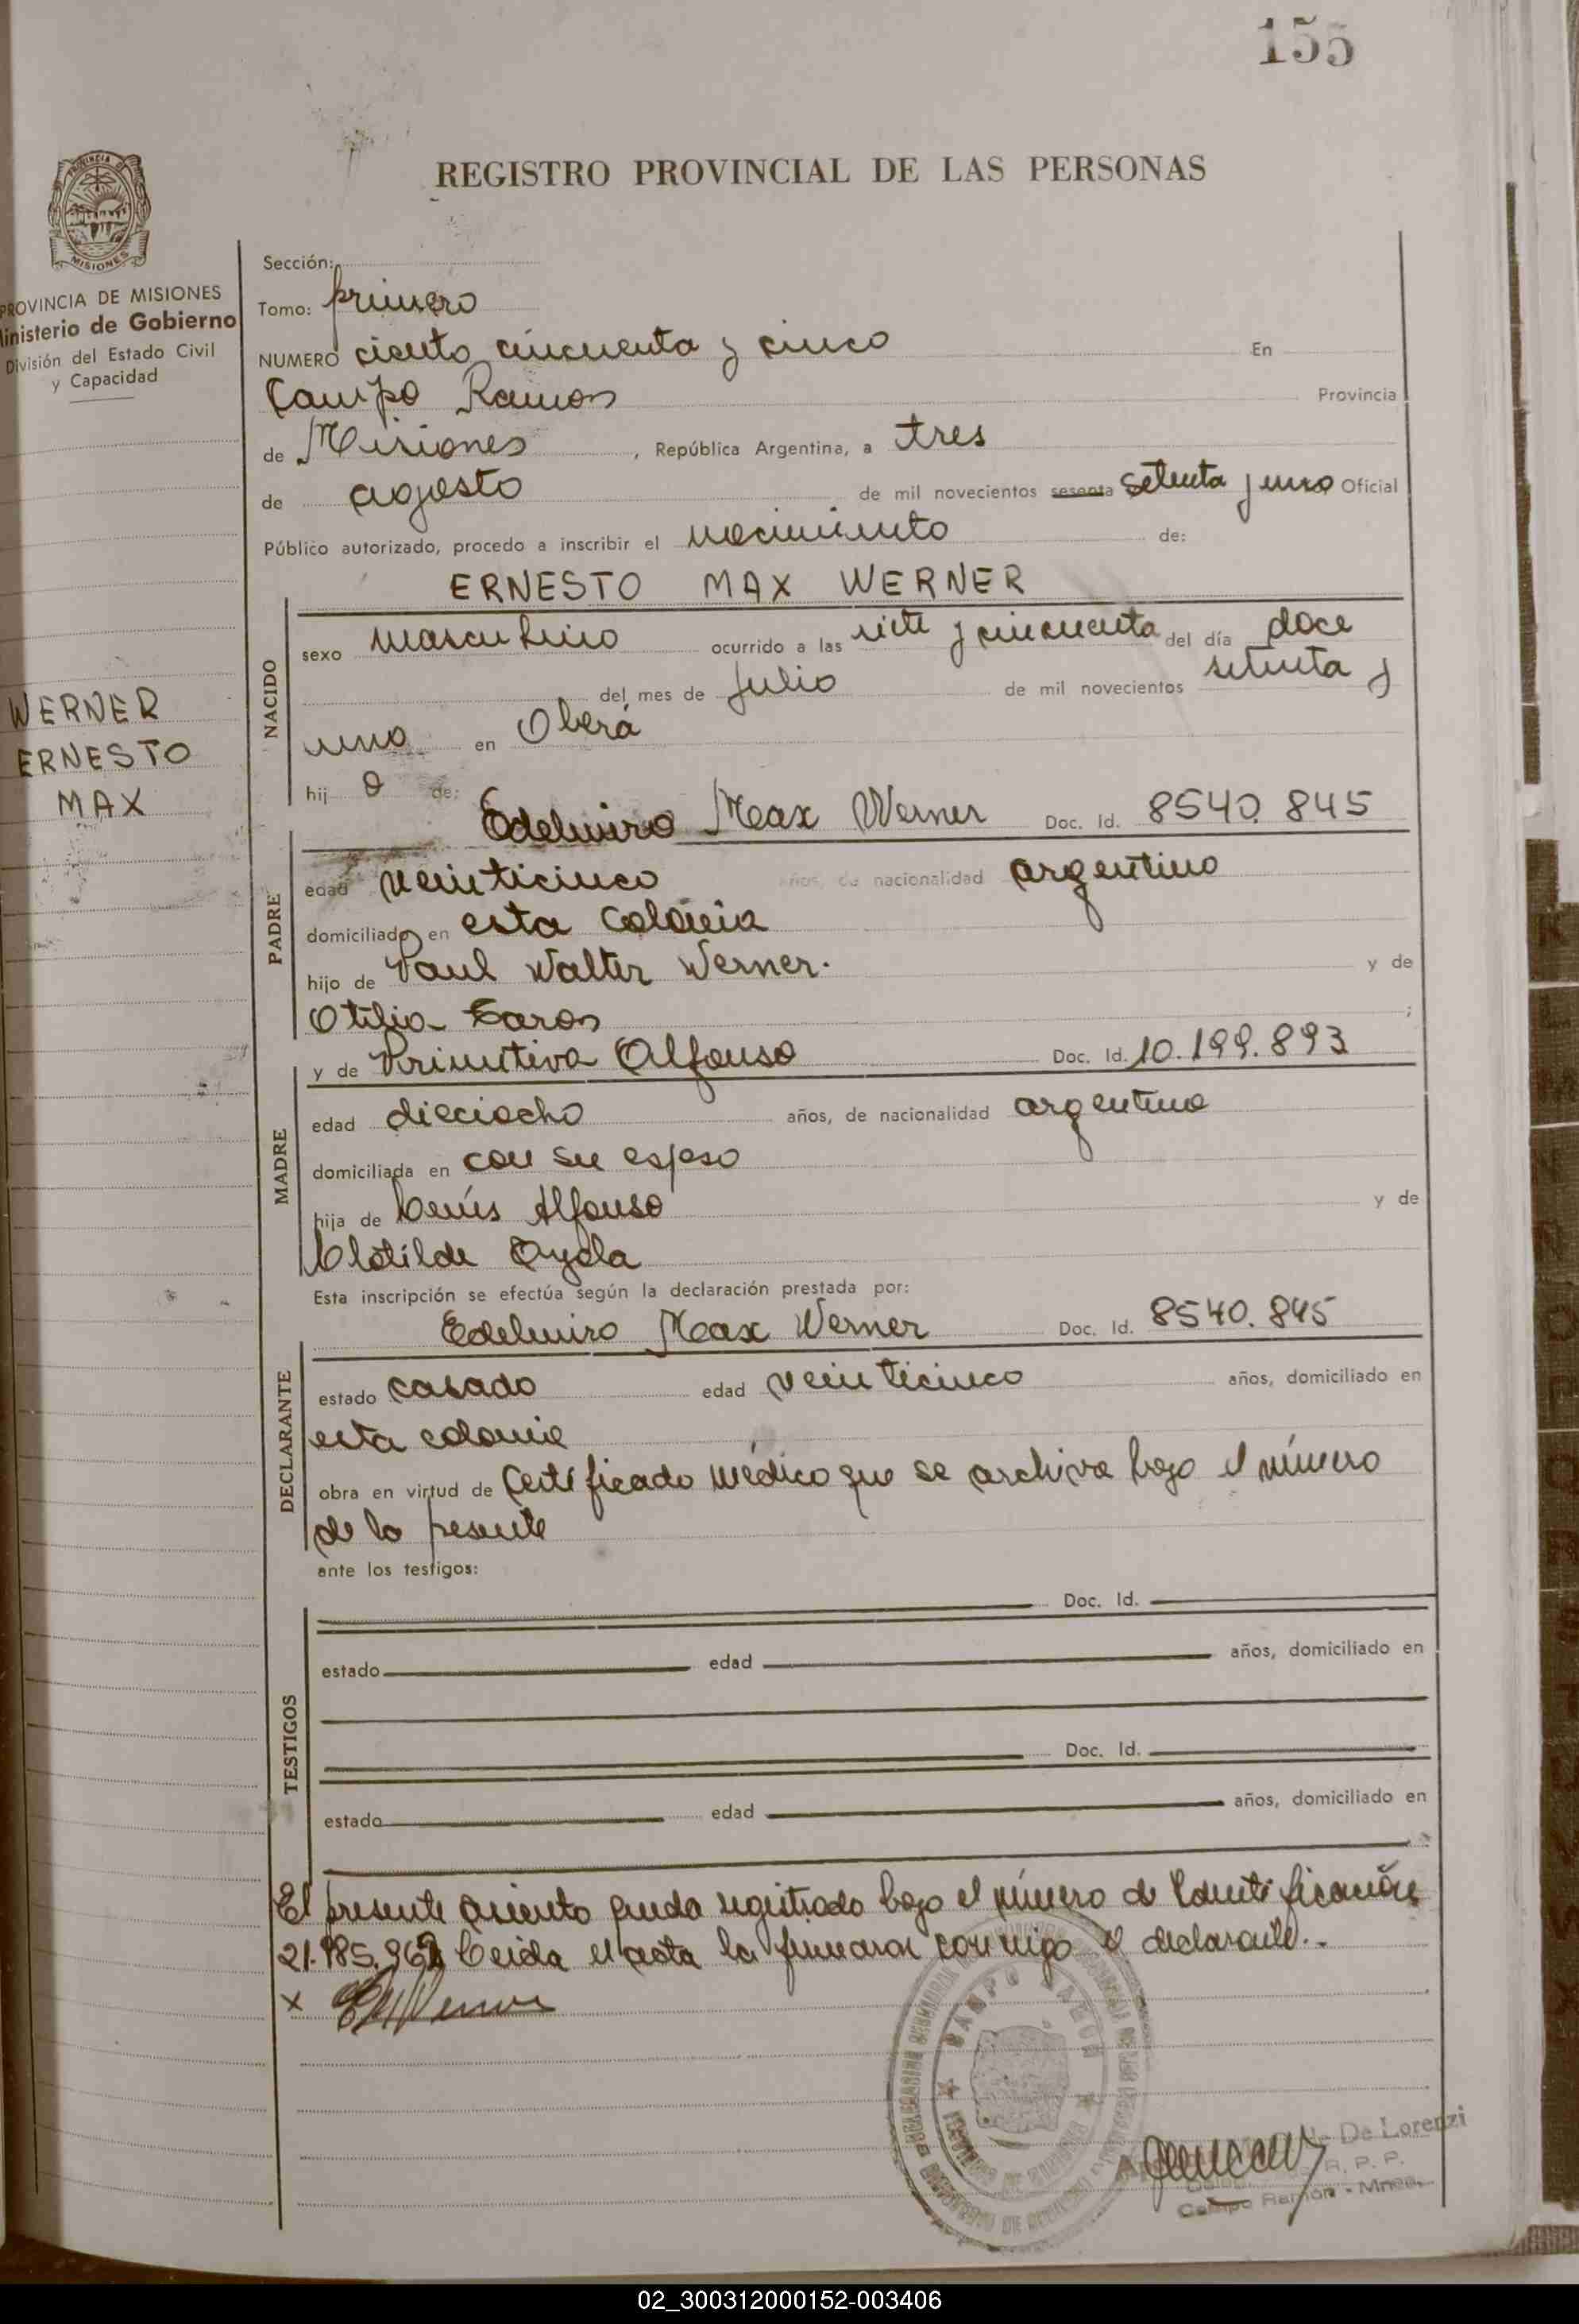 155
REGISTRO PROVINCIAL DE LAS PERSONAS
PROVINCIA DE MISIONES
MISIONES
PROVINCIA DE MISIONES
Ministerio de Gobierno
División del Estado Civil
y Capacidad
WERNER
ERNESTO
MAX
Sección:
Tomo: primero
NUMERO ciento cincuenta y cinco En
Campo Ramon Provincia
de Misiones, República Argentina, a tres
de agosto de mil novecientos sesenta setenta y uno Oficial
Público autorizado, procedo a inscribir el nacimiento de:
ERNESTO MAX WERNER
NACIDO
sexo masculino ocurrido a las siete y cincuenta del día doce
del mes de julio de mil novecientos setenta y
uno en Oberá
hij o de:
Edelmiro Max Werner Doc. Id. 8540.845
PADRE
edad veinticinco años, de nacionalidad argentino
domiciliado en esta colonia
hijo de Paul Walter Werner. y de
Otilia ;
y de Primitiva Alfonso Doc. Id. 10.199.893
MADRE
edad dieciocho años, de nacionalidad argentina
domiciliada en con su esposo
hija de Alfonso y de
Clotilde Oyola
Esta inscripción se efectúa según la declaración prestada por:
Edelmiro Max Werner Doc. Id. 8540.845
DECLARANTE
estado casado edad veinticinco años, domiciliado en
esta colonia
obra en virtud de Certificado médico que se archiva bajo el número
de la presente
ante los testigos:
Doc. Id.
TESTIGOS
estado edad años, domiciliado en
Doc. Id.
estado edad años, domiciliado en
El presente asiento queda registrado bajo el número de Identificación
Leida el acta la firmaron conmigo el declarante.-
x
CAMPO RAMON
De Lorenzi
R. P. P.
Campo Ramón - Mnes.
02_300312000152-003406